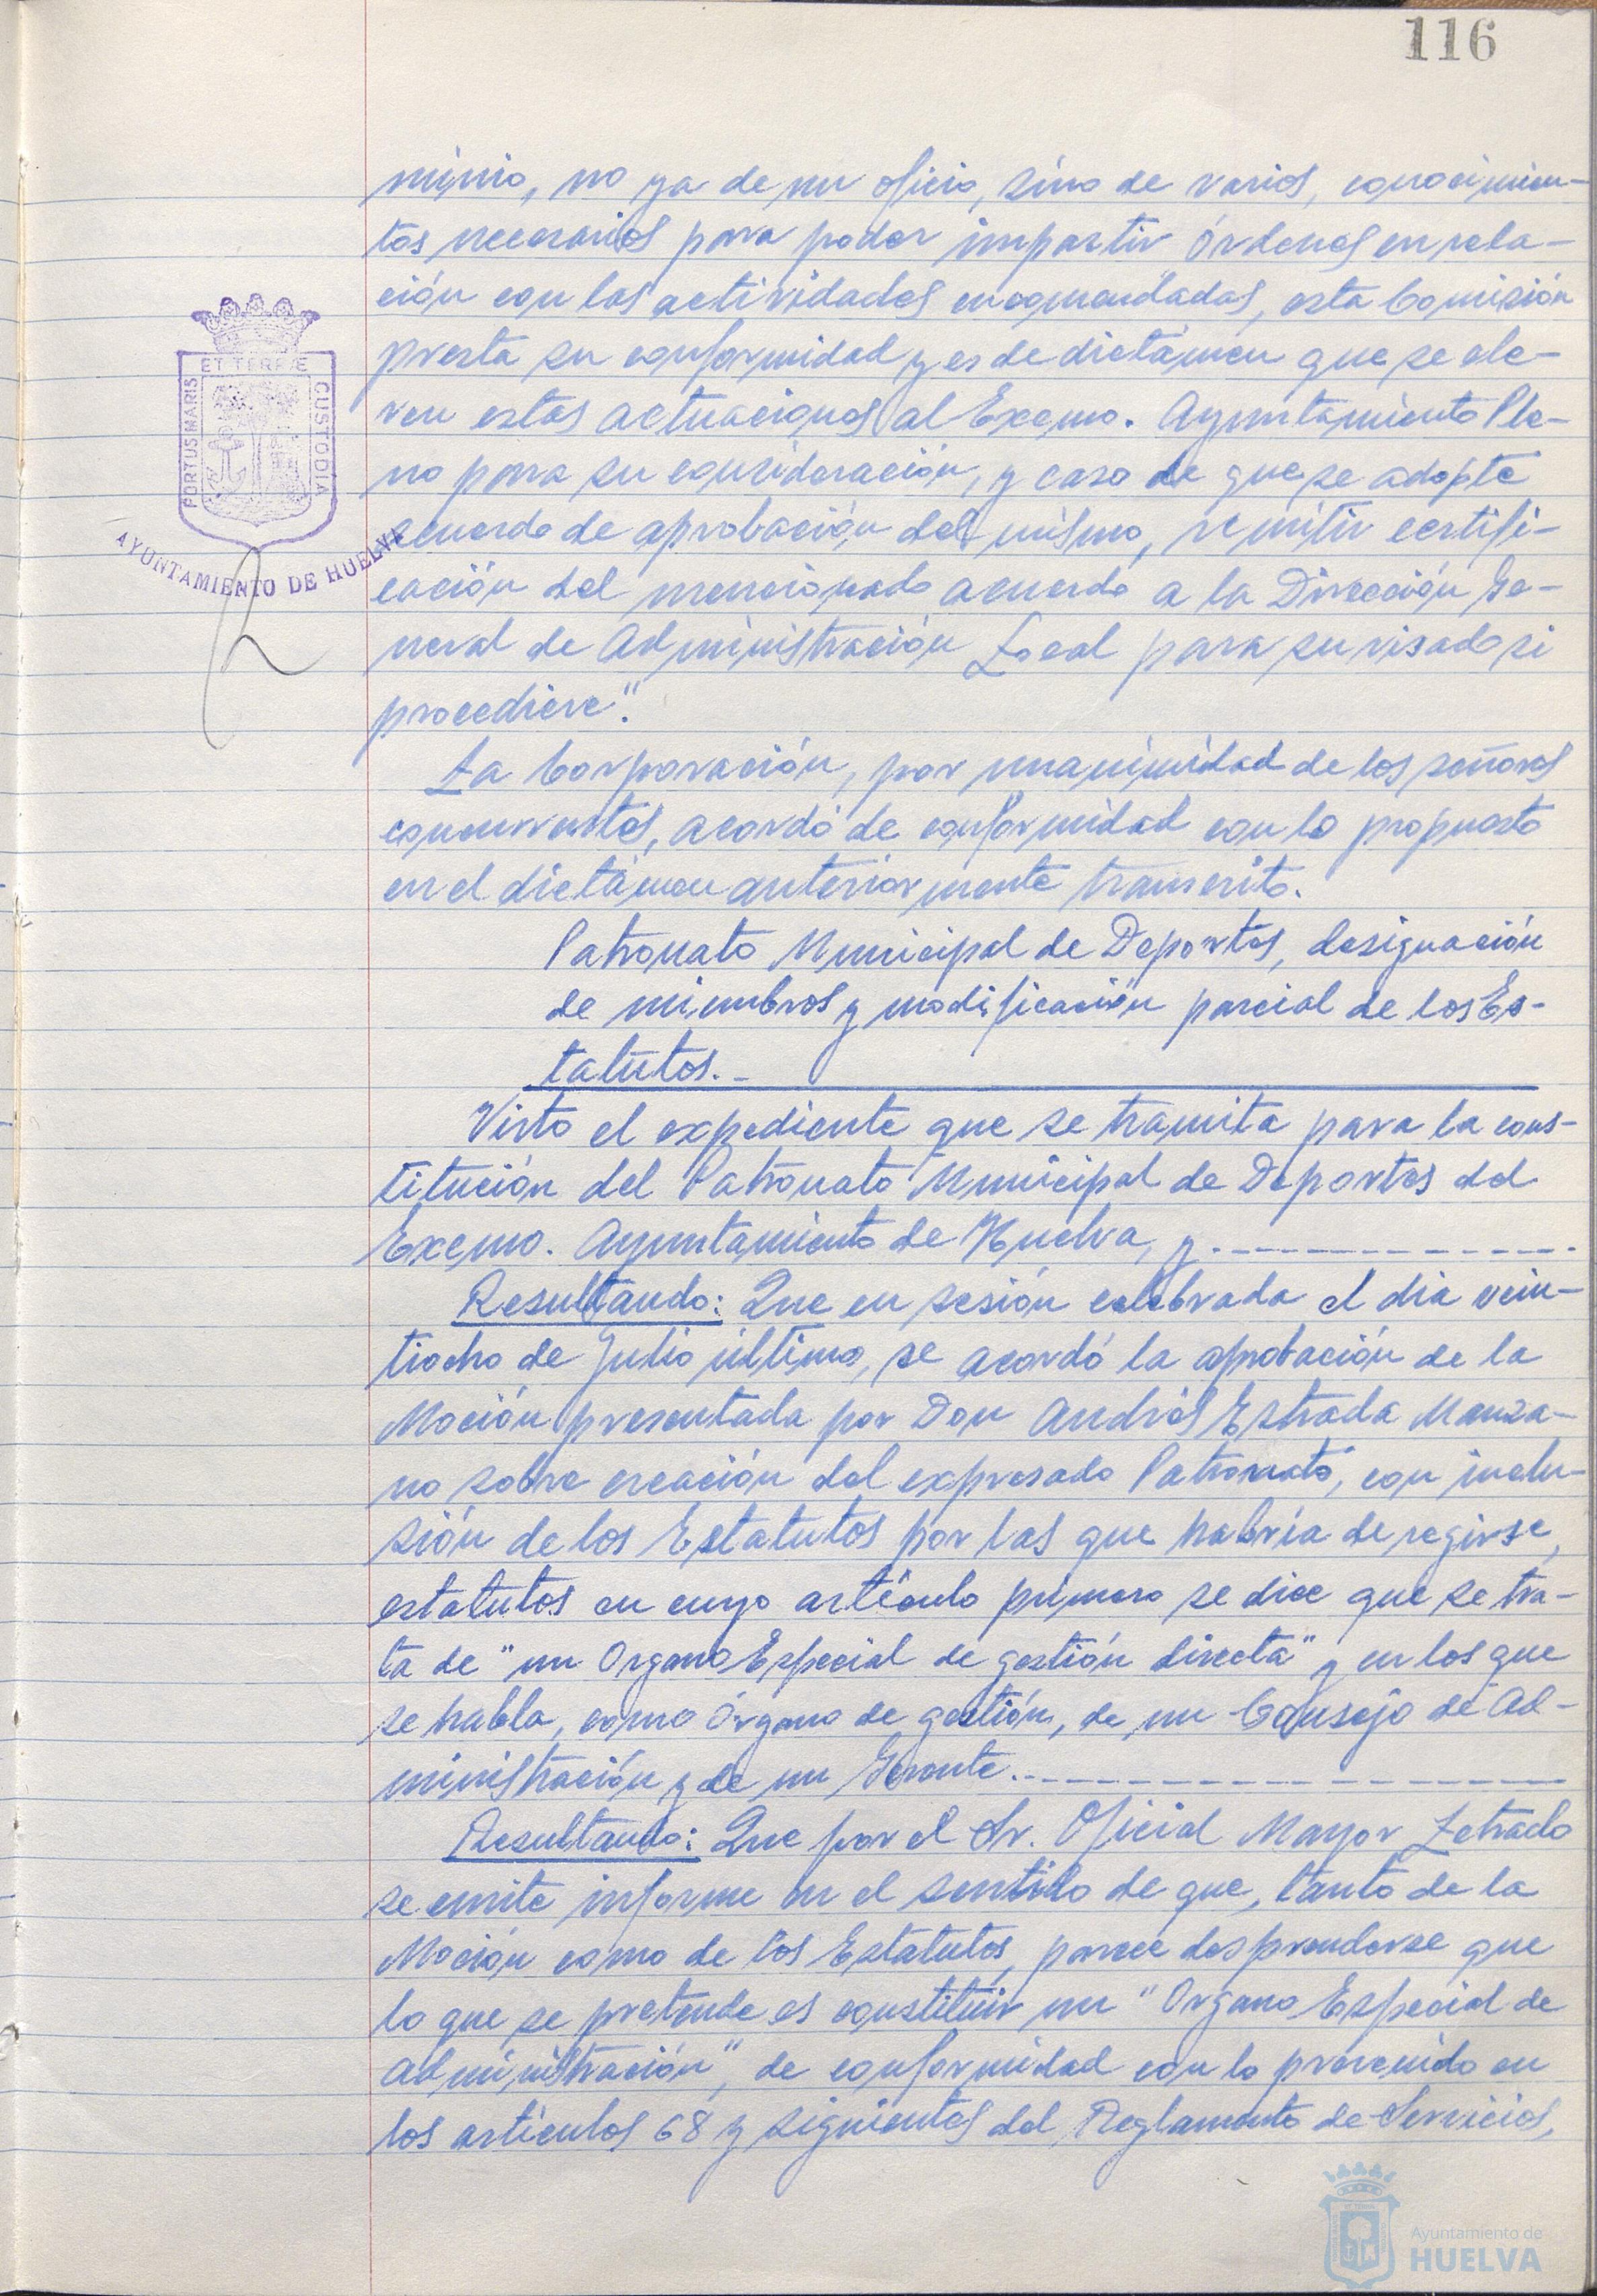 116
minio, no ya de un oficio, sino de varios, conocimien-
tos necesarios para poder impartir órdenes en rela-
ción con las actividades encomendadas, esta Comisión
presta su conformidad y es de dictámen que se ele-
ven estas actuaciones al Excmo. Ayuntamiento Ple-
no para su consideración, y caso de que se adopte
acuerdo de aprobación del mismo, remitir certifi-
cación del mencionado acuerdo a la Dirección Ge-
neral de Administración Local para su visado si
procediere".
La Corporación, por unanimidad de los señores
concurrentes, acordó de conformidad con lo propuesto
en el dictámen anteriormente transcrito.
Patronato Municipal de Deportes, designación
de miembros y modificación parcial de los Es-
tatutos.-
Visto el expediente que se tramita para la cons-
titución del Patronato Municipal de Deportes del
Excmo. Ayuntamiento de Huelva, y.-------------.
Resultando: Que en sesión celebrada el dia vein-
tiocho de Julio último, se acordó la aprobación de la
Moción presentada por Don Andrés Estrada Manza-
no sobre creación del expresado Patronato, con inclu-
sión de los Estatutos por las que habría de regirse,
estatutos en cuyo artículo primero se dice que se tra-
ta de "un Organo Especial de gestión directa" y en los que
se habla, como órgano de gestión, de un Consejo de Ad-
ministración y de un Gerente.------------------
Resultando: Que por el Sr. Oficial Mayor Letrado
se emite informe en el sentido de que, tanto de la
Moción como de los Estatutos, parece desprenderse que
lo que se pretende es constituir un "Organo Especial de
Administración", de conformidad con lo prevenido en
los artículos 68 y siguientes del Reglamento de Servicios,
PORTUS MARIS
ET TERRAE
CUSTODIA
AYUNTAMIENTO DE HUELVA
Ayuntamiento de
HUELVA